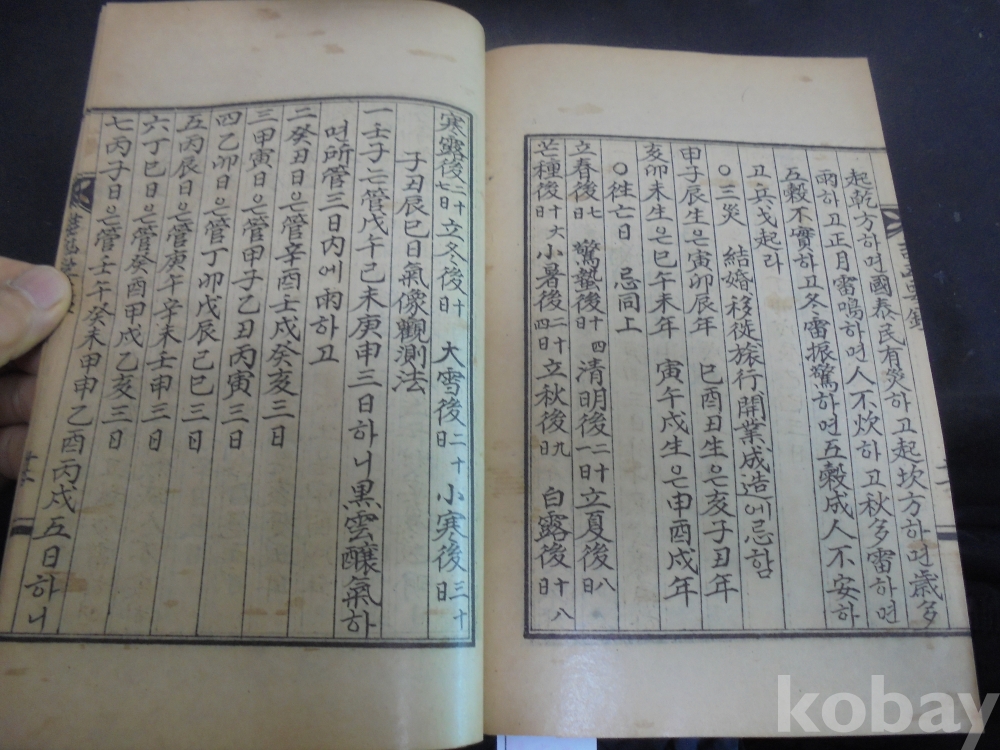 起乾方하며國泰民有災하고起坎方하며歲多
雨하고正月雷鳴하며人不炊하고秋多雷하며
五穀不實하고冬雷振驚하며五穀成人不安하
고兵戈起라
○三災 結婚移徙旅行開業成造에忌함
申子辰生은寅卯辰年 巳酉丑生은亥子丑年
亥卯未生은巳午未年 寅午戌生은申酉戌年
○徃亡日 忌同上
立春後七日 驚蟄後十四日 清明後二十一日 立夏後八日
芒種後十六日 小暑後二十四日 立秋後九日 白露後十八日
寒露後二十七日 立冬後十日 大雪後二十日 小寒後三十日
子丑辰巳日氣像觀測法
一壬子는管戊午己未庚申三日하니黑雲釀氣하
며所管三日内에雨하고
二癸丑日은管辛酉壬戌癸亥三日
三甲寅日은管甲子乙丑丙寅三日
四乙卯日은管丁卯戊辰己巳三日
五丙辰日은管庚午辛未壬申三日
六丁巳日은管癸酉甲戌乙亥三日
七丙子日은管壬午癸未甲申乙酉丙戌五日하니
kobay